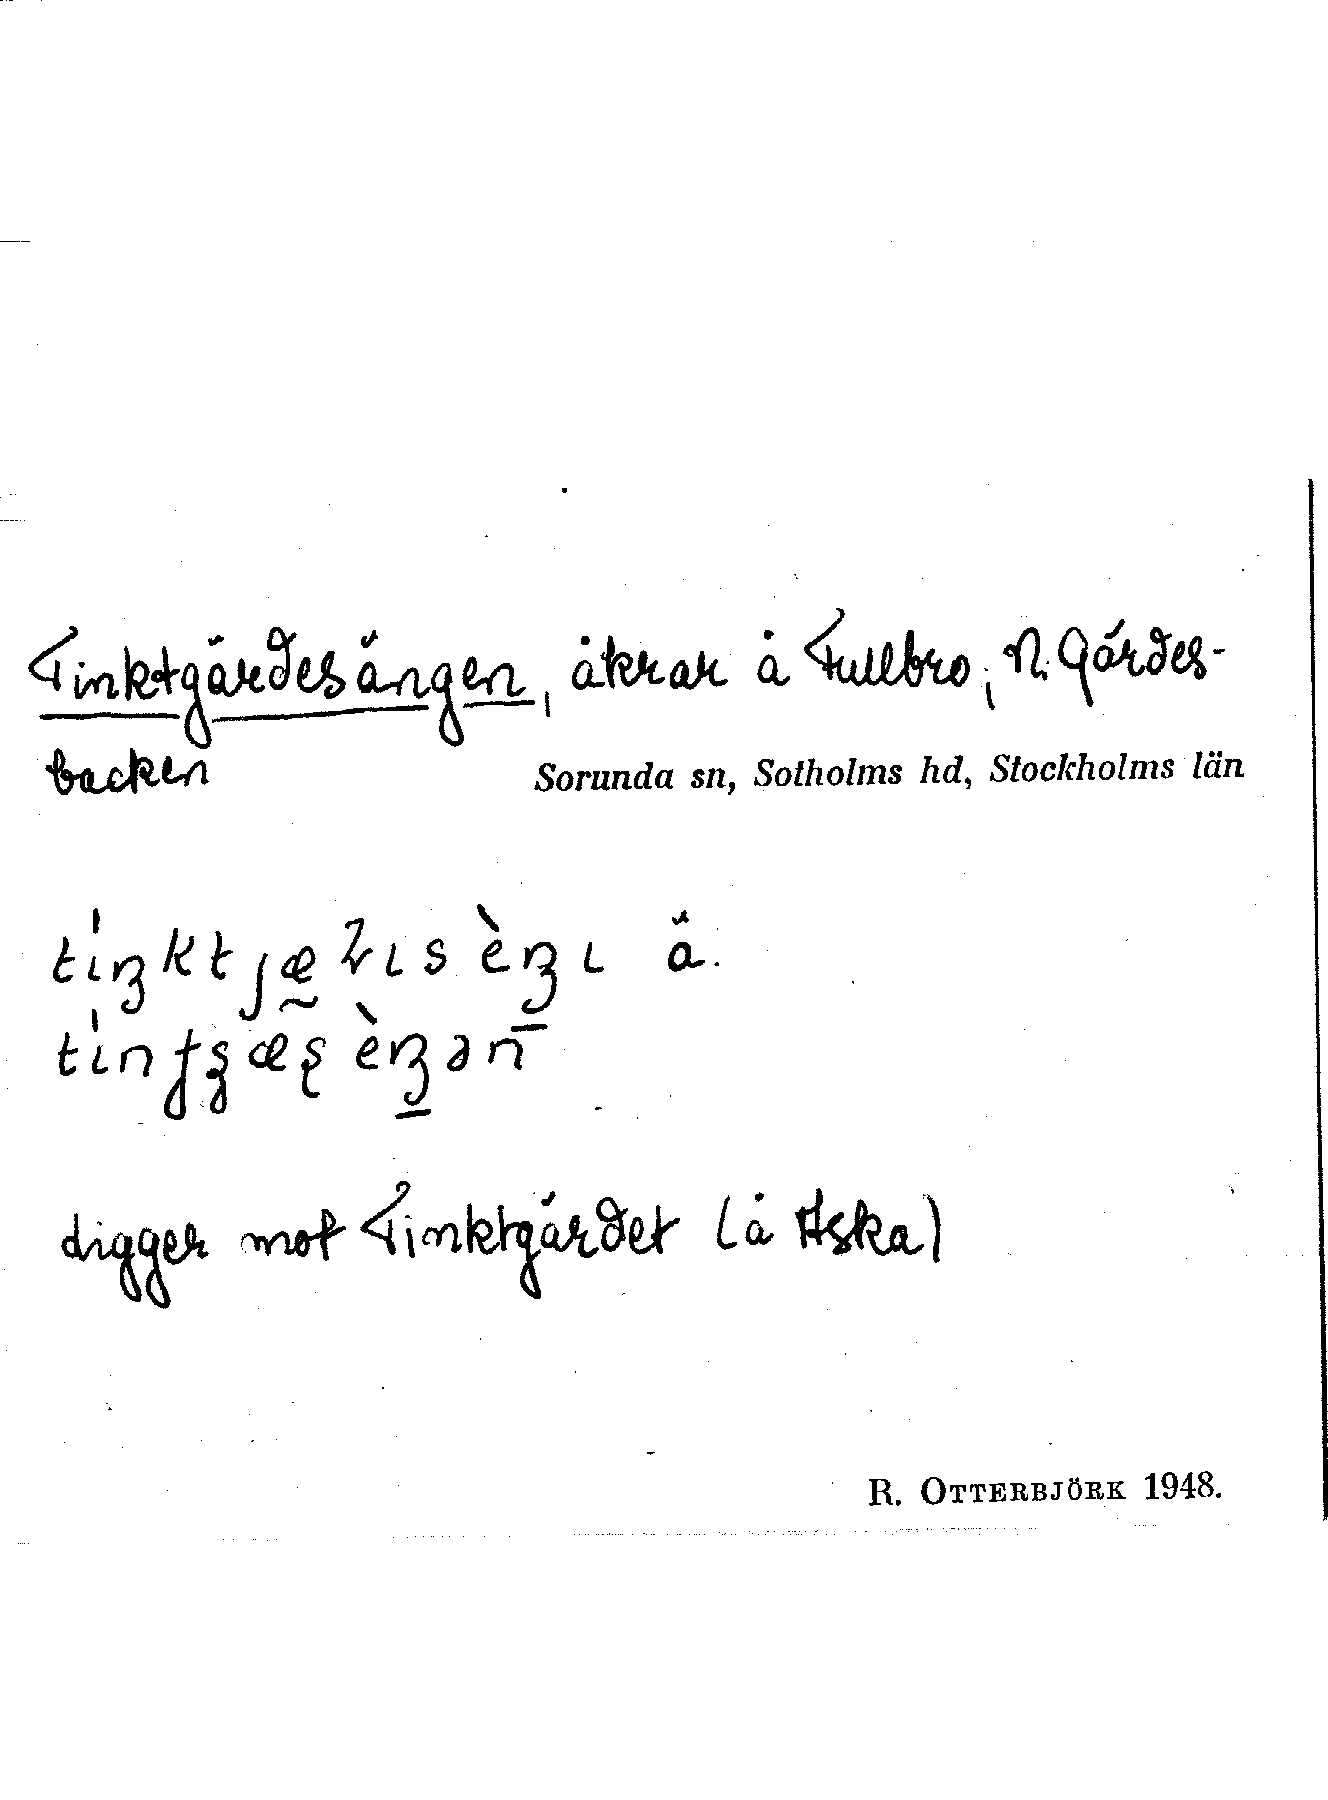 Tinktgärdesängen, åkrar å Fullbro; N. Gärdes-
backen
Sorunda sn, Sotholms hd, Stockholms län
digger mot Tinktgärdet (å Aska)
R. OTTERBJÖRK 1948.